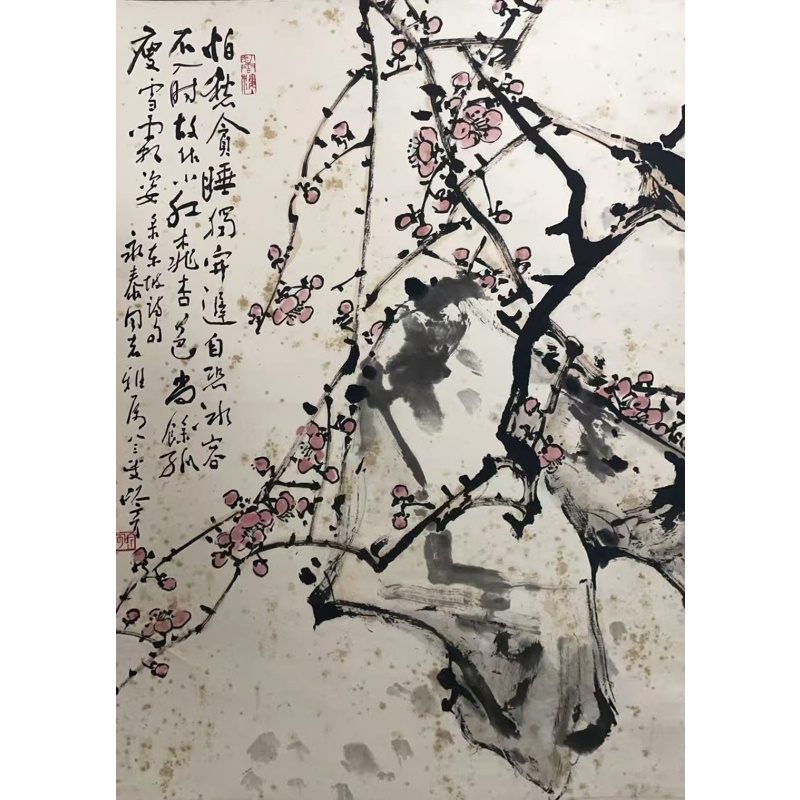 怕愁貪睡獨開遲自恐冰容
不入时故作小紅桃杏色尚餘孤
瘦雪霜姿 录东坡诗句
永泰同志雅属 八三叟